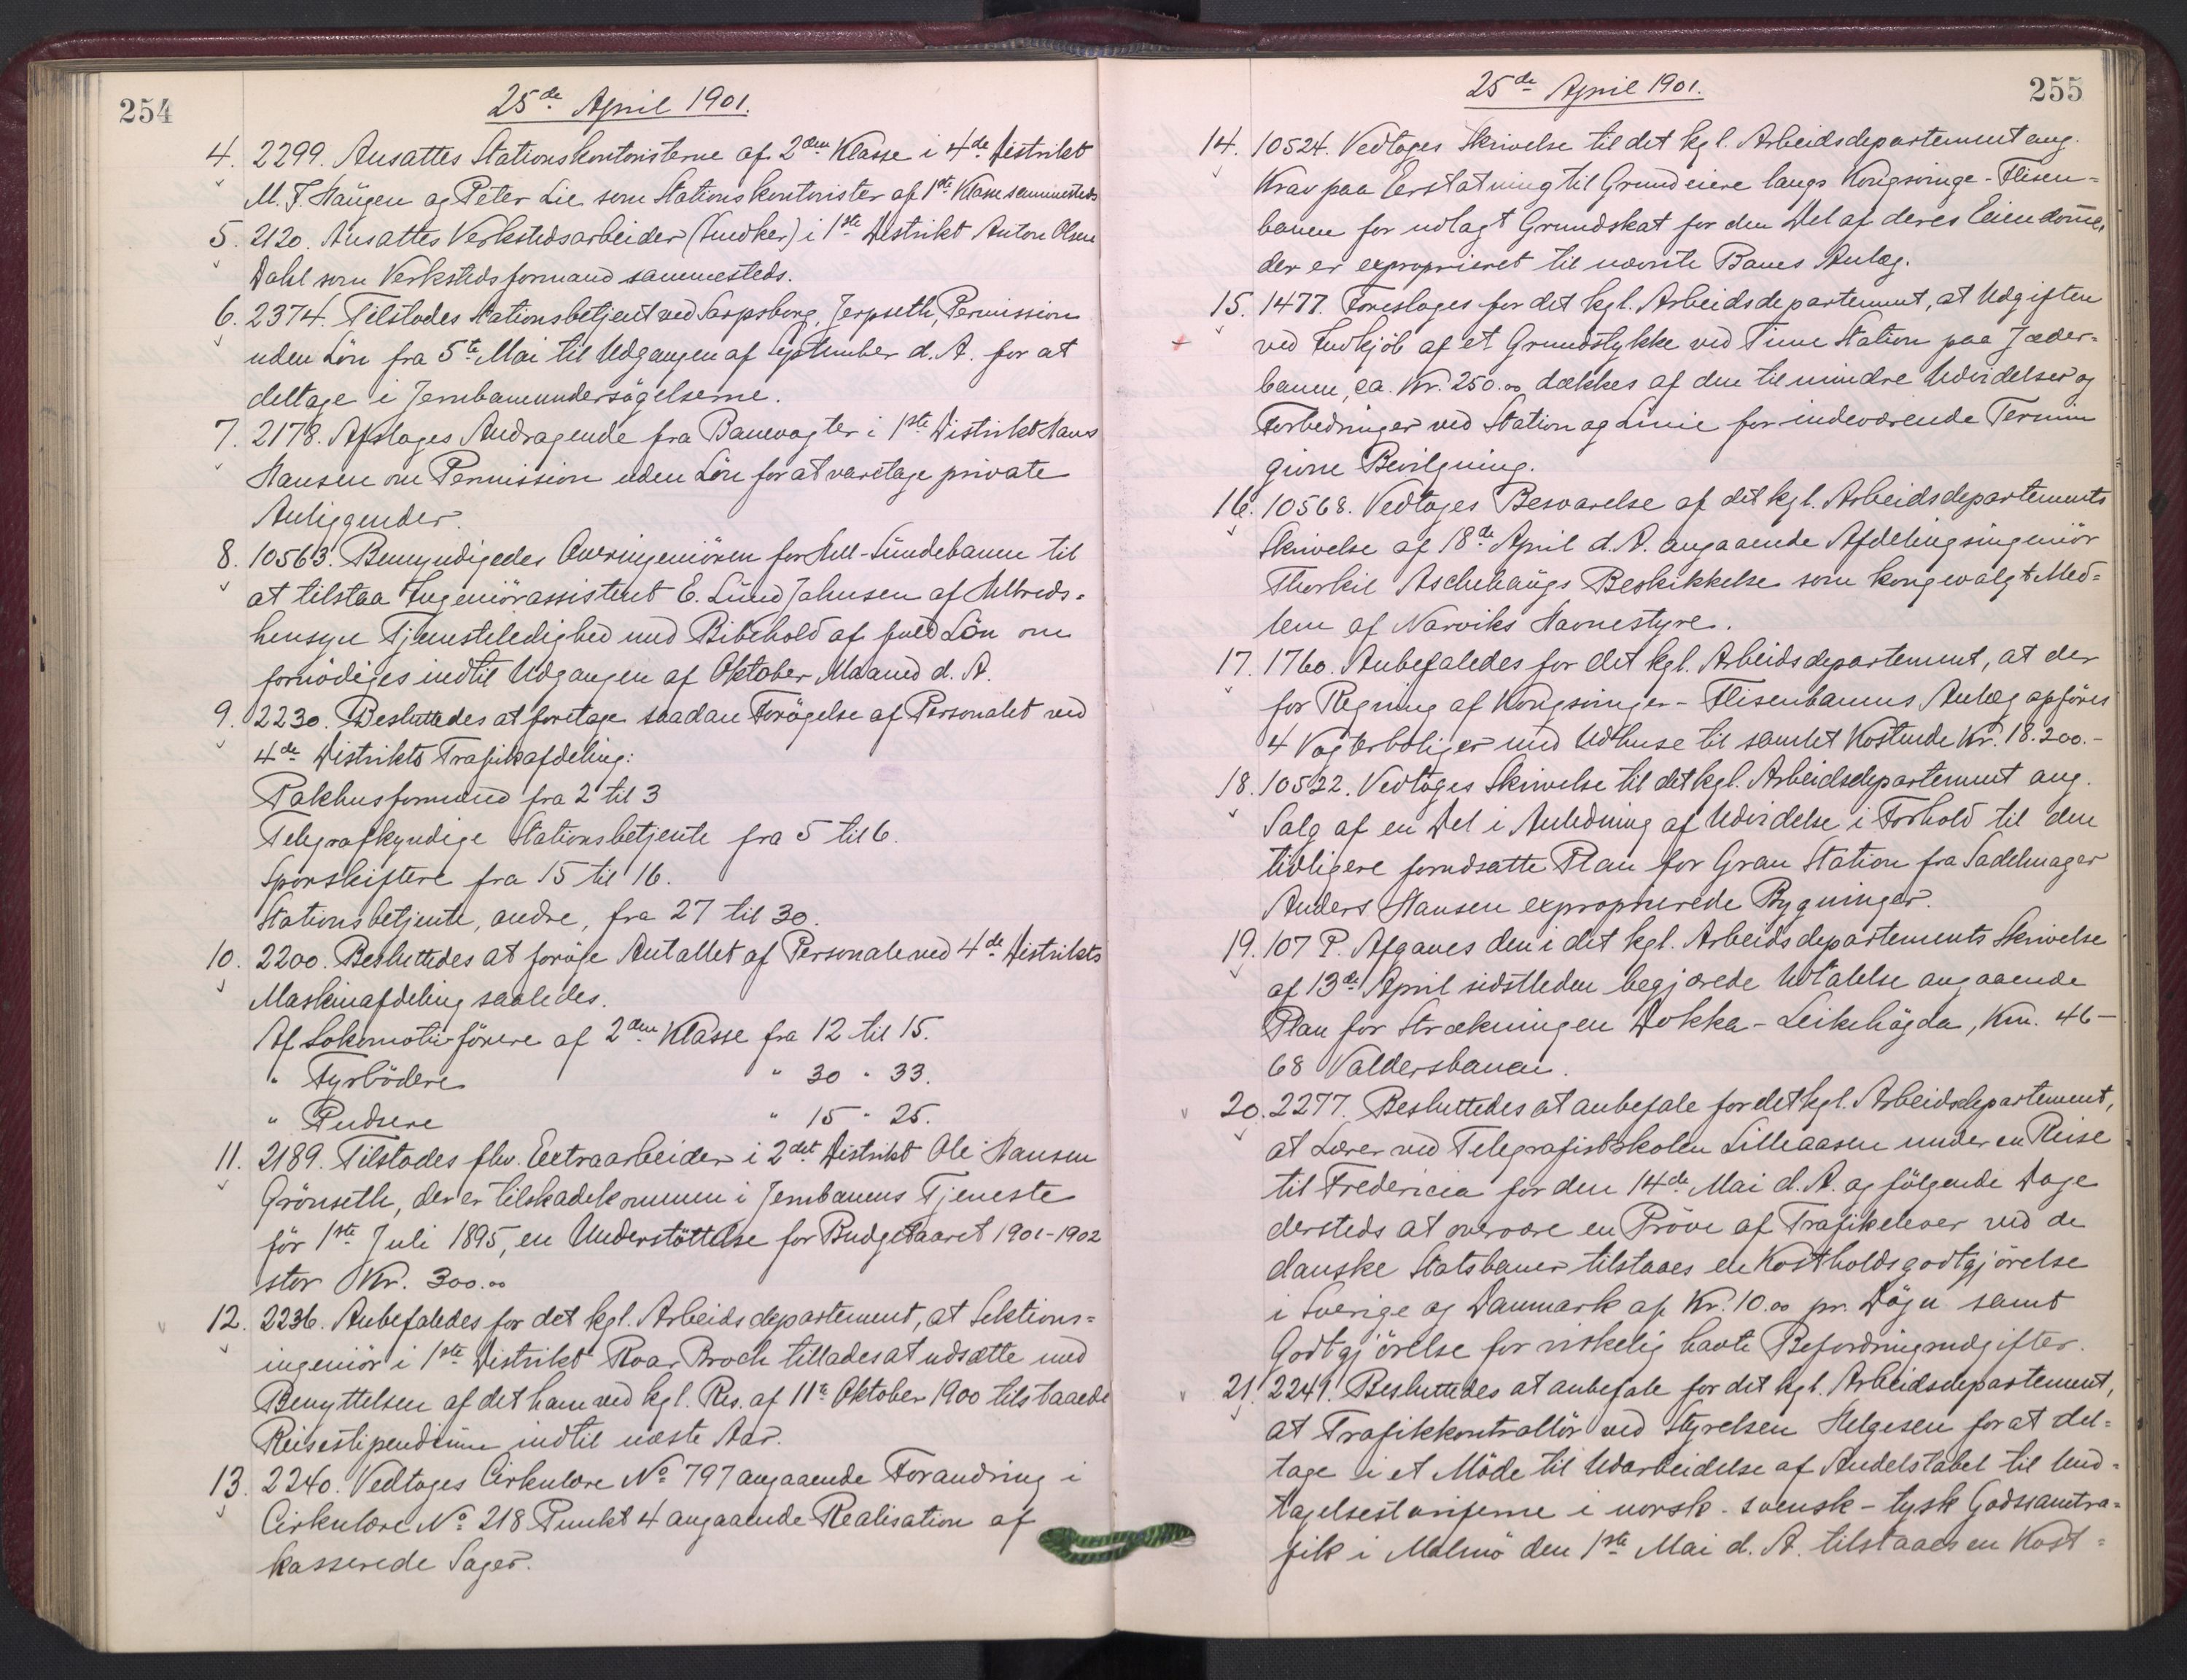 254
25de April 1901.
4. 2299. Ansattes Stationskontoristerne af 2den Klasse i 4de Distrikt
M. F. Haugen og Peter Lie som Stationskontorister af 1ste Klasse sammesteds
5. 2120. Ansattes Verkstedsarbeider (Snedker) i 1ste Distrikt Anton Olsen
Dahl som Verkstedsformand sammesteds.
6. 2374. Tilstodes Stationsbetjent ved Sarpsborg, Jerpseth, Permission
uden Lön fra 5te Mai til Udgangen af September d. A. for at
deltage i Jernbaneundersögelserne.
7. 2178. Afsloges Andragende fra Banevogter i 1ste Distrikt Hans
Hansen om Permission uden Lön for at varetage private
Anliggender.
8. 10563. Bemyndigedes Overingeniören for Hell-Sundebanen til
at tilstaa Ingeniörassistent E. Lund Johnsen af Helbreds=
hensyn Tjenesteledighed med Bibehold af fuld Lön om
fornödiges indtil Udgangen af Oktober Maaned d. A.
9. 2230. Besluttedes at foretage saadan Forögelse af Personalet ved
4de Distrikts Trafikafdeling:
Pakhusformænd fra 2 til 3
Telegrafkyndige Stationsbetjente fra 5 til 6.
Sporskiftere fra 15 til 16.
Stationsbetjente, andre, fra 27 til 30.
10. 2200. Besluttedes at foröge Antallet af Personale ved 4de Distrikts
Maskinafdeling saaledes.
Af Lokomotivförere af 2den Klasse fra 12 til 15.
" Fyrbödere " 30 " 33.
" Pudsere " 15 " 25.
11. 2189. Tilstodes fhv. Extraarbeider i 2det Distrikt Ole Hansen
Grönseth, der er tilskadekommen i Jernbanens Tjeneste
för 1ste Juli 1895, en Understöttelse for Budgetaaret 1901-1902
stor Kr. 300.00
12. 2236. Anbefaledes for det kgl. Arbeidsdepartement, at Sektions=
ingeniör i 1ste Distrikt Roar Broch tillades at udsætte med
Benyttelsen af det ham ved kgl. Res. af 11te Oktober 1900 tilstaaede
Reisestipendium indtil næste Aar.
13. 2240. Vedtoges Cirkulære No 797 angaaende Forandring i
Cirkulære No 218 Punkt 4 angaaende Realisation af
kasserede Sager.
255
25de April 1901.
14. 10524. Vedtoges Skrivelse til det kgl. Arbeidsdepartement ang.
Krav paa Erstatning til Grundeiere langs Kongsvinge-Flisen=
banen for udlagt Grundskat for den Del af deres Eiendomme,
der er exproprieret til nævnte Banes Anlæg.
15. 1477. Foresloges for det kgl. Arbeidsdepartement, at Udgiften
ved Indkjöb af et Grundstykke ved Time Station paa Jæder=
banen, ca. Kr. 250.00, dækkes af den til mindre Udvidelser og
Forbedringer ved Station og Linie for indeværende Termin
givne Bevilgning.
16. 10568. Vedtoges Besvarelse af det kgl. Arbeidsdepartements
Skrivelse af 18de April d. A. angaaende Afdelingsingeniör
Thorkil Aschehaugs Beskikkelse som kongevalgt Med=
lem af Narviks Havnestyre.
17. 1760. Anbefaledes for det kgl. Arbeidsdepartement, at der
for Regning af Kongsvinger-Flisenbanens Anlæg opföres
4 Vogterboliger med Udhuse til samlet Kostende Kr. 18.200.-
18. 10522. Vedtoges Skrivelse til det kgl. Arbeidsdepartement ang.
Salg af en Del i Anledning af Udvidelse i Forhold til den
tidligere forudsatte Plan for Gran Station fra Sadelmager
Anders Hansen exproprierede Bygninger.
19. 107 P. Afgaves den i det kgl. Arbeidsdepartements Skrivelse
af 13de April sidstleden begjærede Udtalelse angaaende
Plan for Strækningen Dokka-Leikehögda, Km. 46-
68 Valdersbanen.
20. 2277. Besluttedes at anbefale for det kgl. Arbeidsdepartement,
at Lærer ved Telegrafistskolen Lilleaasen under en Reise
til Fredericia for den 14de Mai d. A. og fölgende Dage
dersteds at overvære en Pröve af Trafikelever ved de
danske Statsbaner tilstaaes en Kostholdsgodtgjörelse
i Sverige og Danmark af Kr. 10.00 pr. Dögn samt
Godtgjörelse for virkelig havte Befordringsudgifter.
21. 2241. Besluttedes at anbefale for det kgl. Arbeidsdepartement,
at Trafikkontrollör ved Styrelsen Helgesen for at del=
tage i et Möde til Udarbeidelse af Andelstabel til Und=
tagelsestarifferne i norsk-svensk-tysk Godssamtra=
fik i Malmö den 1ste Mai d. A. tilstaaes en Kost=